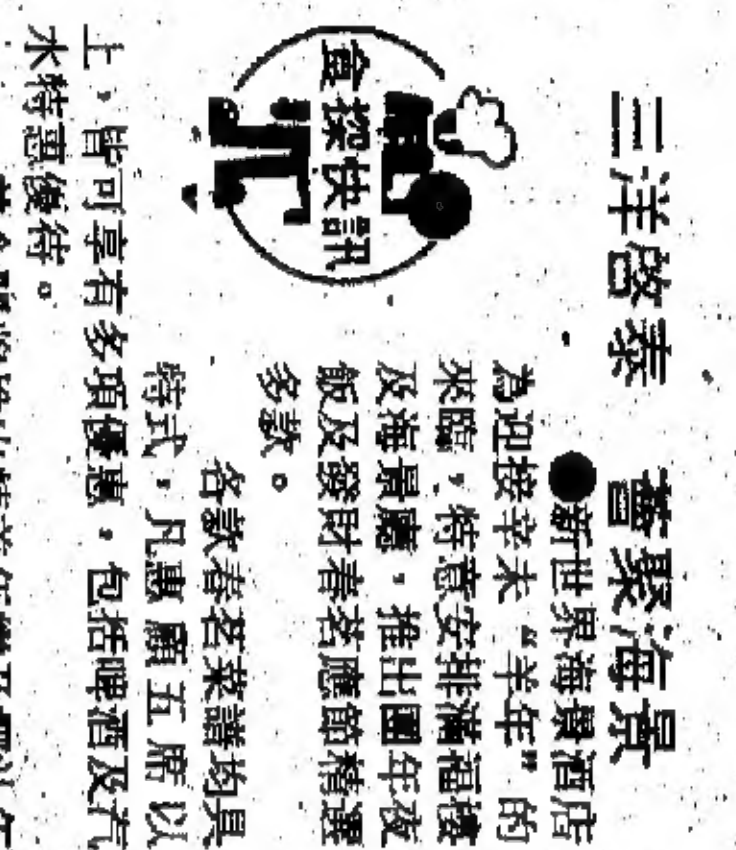 三洋啓泰　薈聚海景
食探快訊
●新世界海景酒店
為迎接辛未“羊年”的
來臨，特意安排滿福樓
及海景廳，推出團年夜
飯及發財春茗應節精選
多款。
各款春茗菜譜均具
特式，凡惠顧五席以
上，皆可享有多項優惠，包括啤酒及汽
水特惠優待。